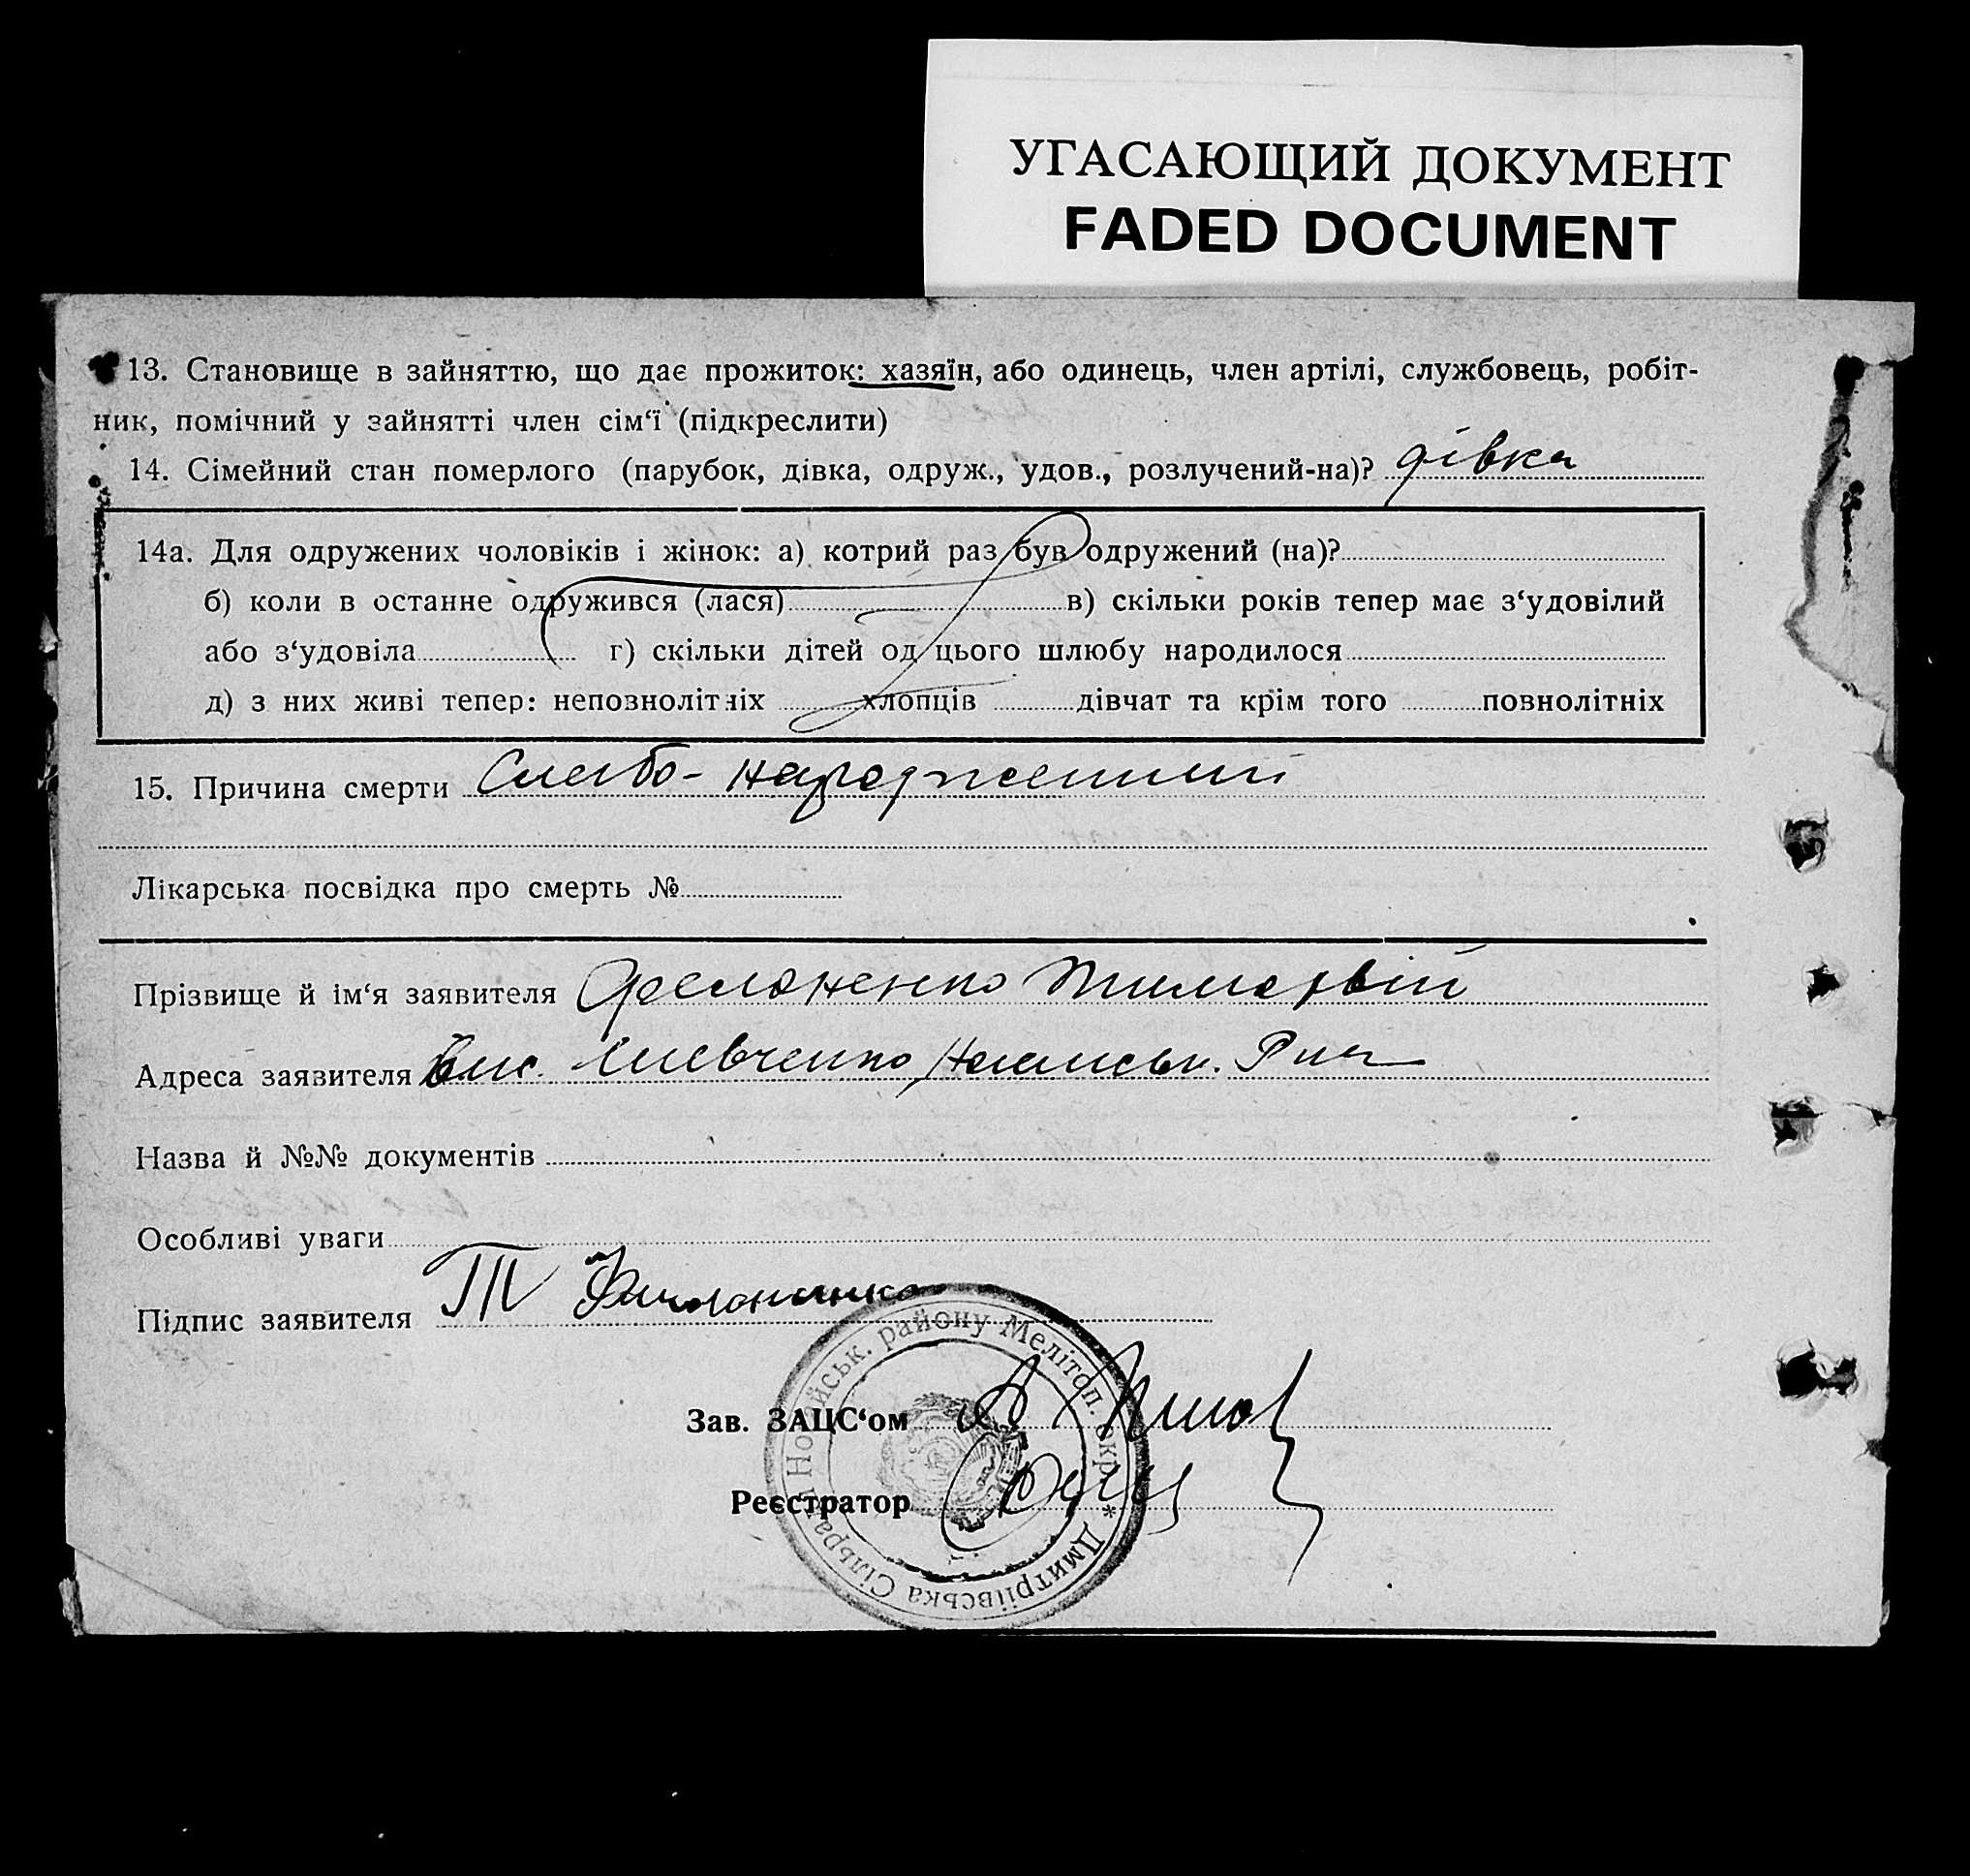 УГАСАЮЩИЙ ДОКУМЕНТ
FADED DOCUMENT
13. Становище в зайняттю, що дає прожиток: хазяїн, або одинець, член артілі, службовець, робіт-
ник, помічний у зайнятті член сім‘ї (підкреслити)
14. Сімейний стан померлого (парубок, дівка, одруж., удов., розлучений-на)? дівка
14а. Для одружених чоловіків і жінок: а) котрий раз був одружений (на)?
б) коли в останне одружився (лася) в) скільки років тепер має з‘удовілий
або з‘удовіла г) скільки дітей од цього шлюбу народилося
д) з них живі тепер: неповнолітніх хлопців дівчат та крім того повнолітніх
15. Причина смерти Слабо-народжений
Лікарська посвідка про смерть №
Прізвище й ім‘я заявителя Тимофій
Адреса заявителя Вис. Шевченко
Назва й №№ документів
Особливі уваги
Підпис заявителя Т
Зав. ЗАЦС‘ом
Реєстратор
Дмитріівська Сільрада району Мелітоп. окр. *